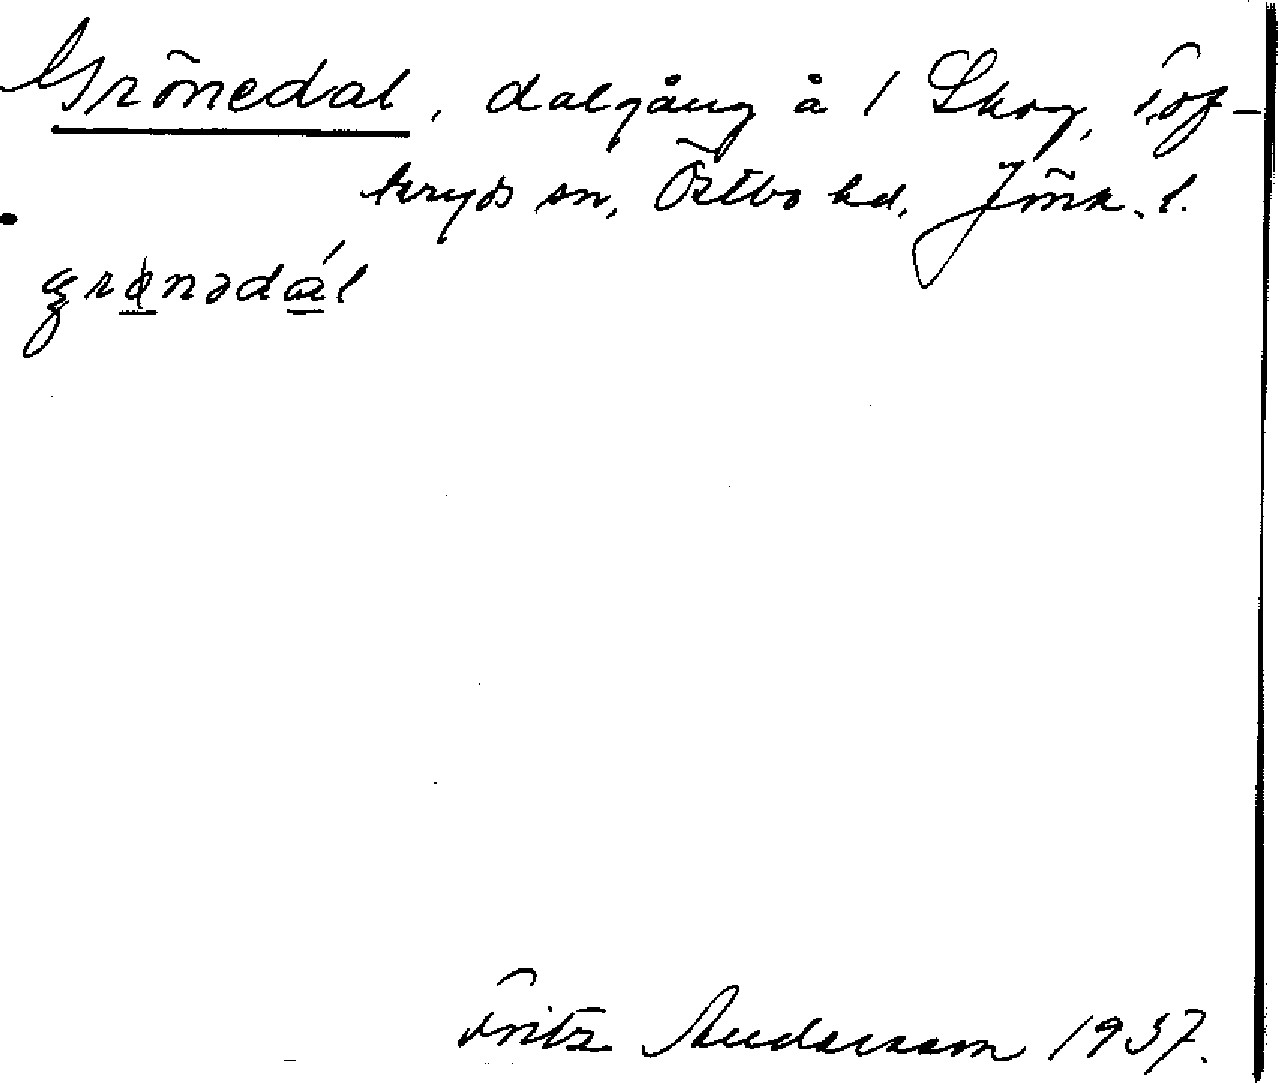 Grönedal, dalgång å 1 Skog, Tof-
teryds sn, Östbo hd. Jönk. l.
grønədál
Fritz Andersson 1937.